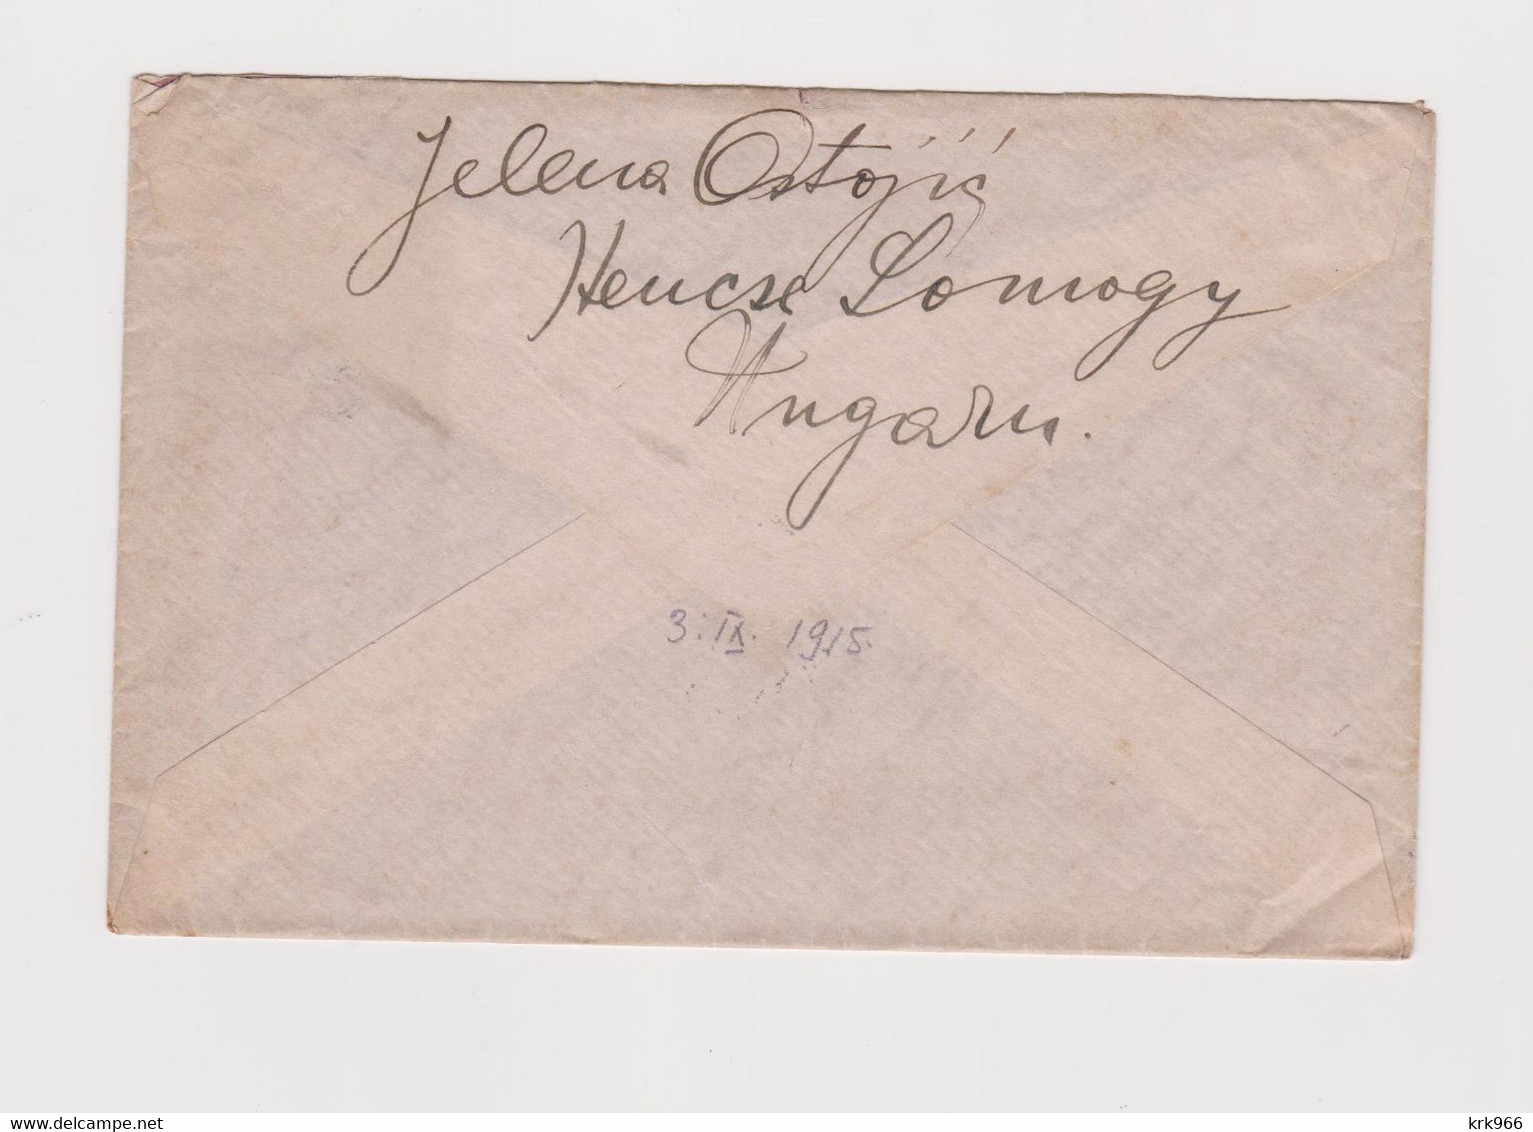 Jelena Ostojić
Hencse Somogy
Ungarn.
3. IX. 1915.
delcampe.net
krk966